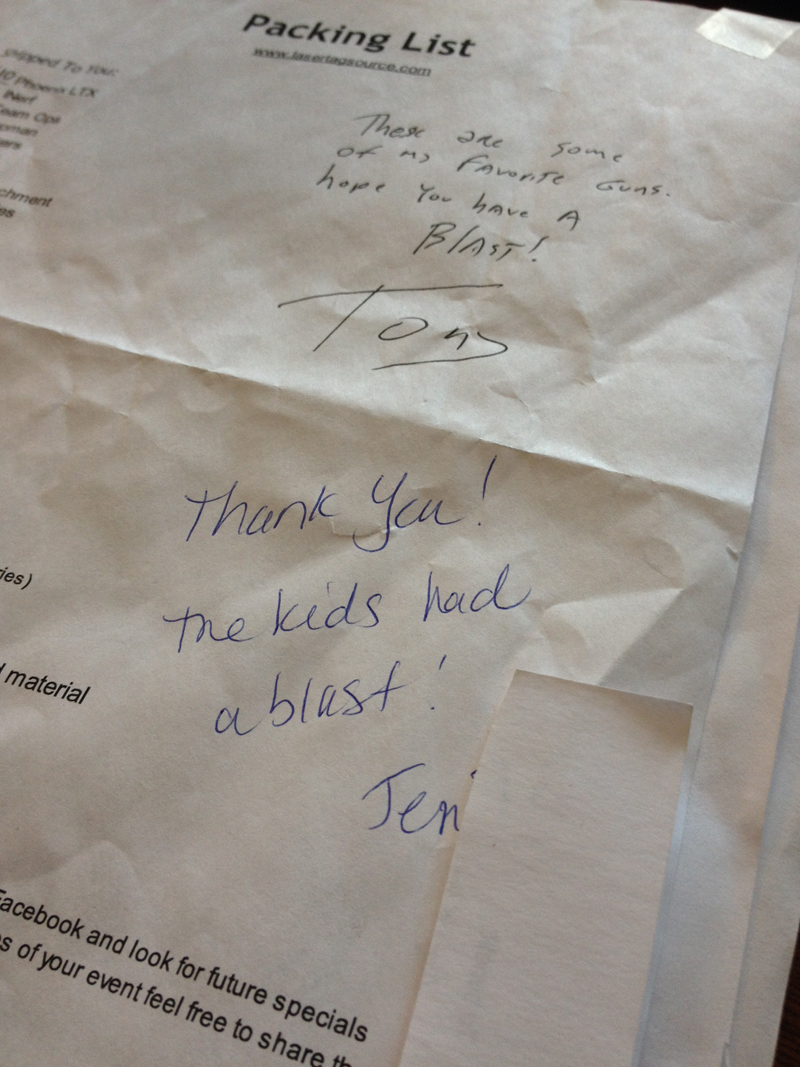 Packing List
www.lasertagsource.com
Shipped To You:
10 Phoenix LTX
Nerf
Team Ops
These are some
of my FAVORITE Guns.
hope You have A
BLAST!
Tony
Thank You!
The kids had
a blast!
Jen
material
Facebook and look for future specials
of your event feel free to share